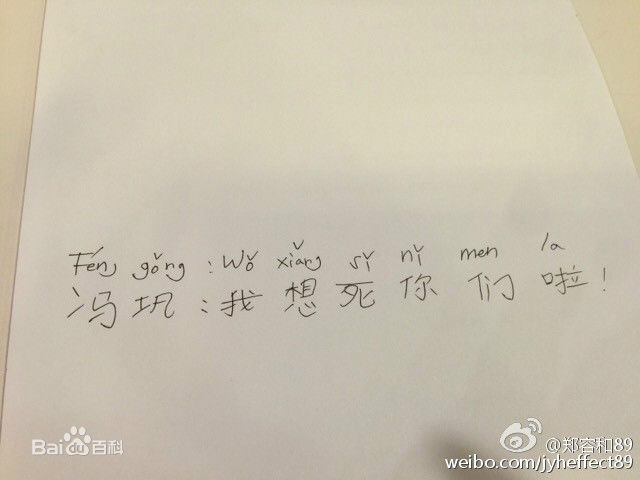 Féng gǒng : Wǒ xiǎng sǐ nǐ men la
冯巩：我想死你们啦！
Bai百科
@郑容和89
weibo.com/jyheffect89